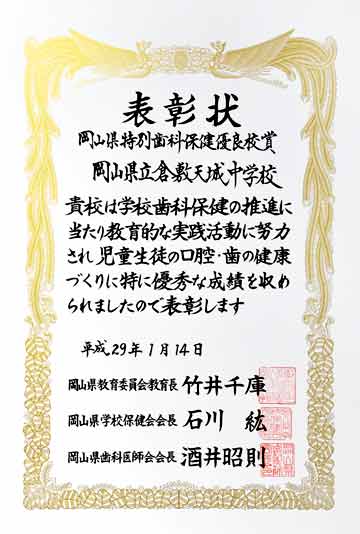 表彰状
岡山県特別歯科保健優良校賞
岡山県立倉敷天城中学校
貴校は学校歯科保健の推進に
当たり教育的な実践活動に努力
され児童生徒の口腔・歯の健康
づくりに特に優秀な成績を収め
られましたので表彰します
平成29年1月14日
岡山県教育委員会教育長 竹井千庫
岡山県学校保健会会長 石川 紘
岡山県歯科医師会会長 酒井昭則